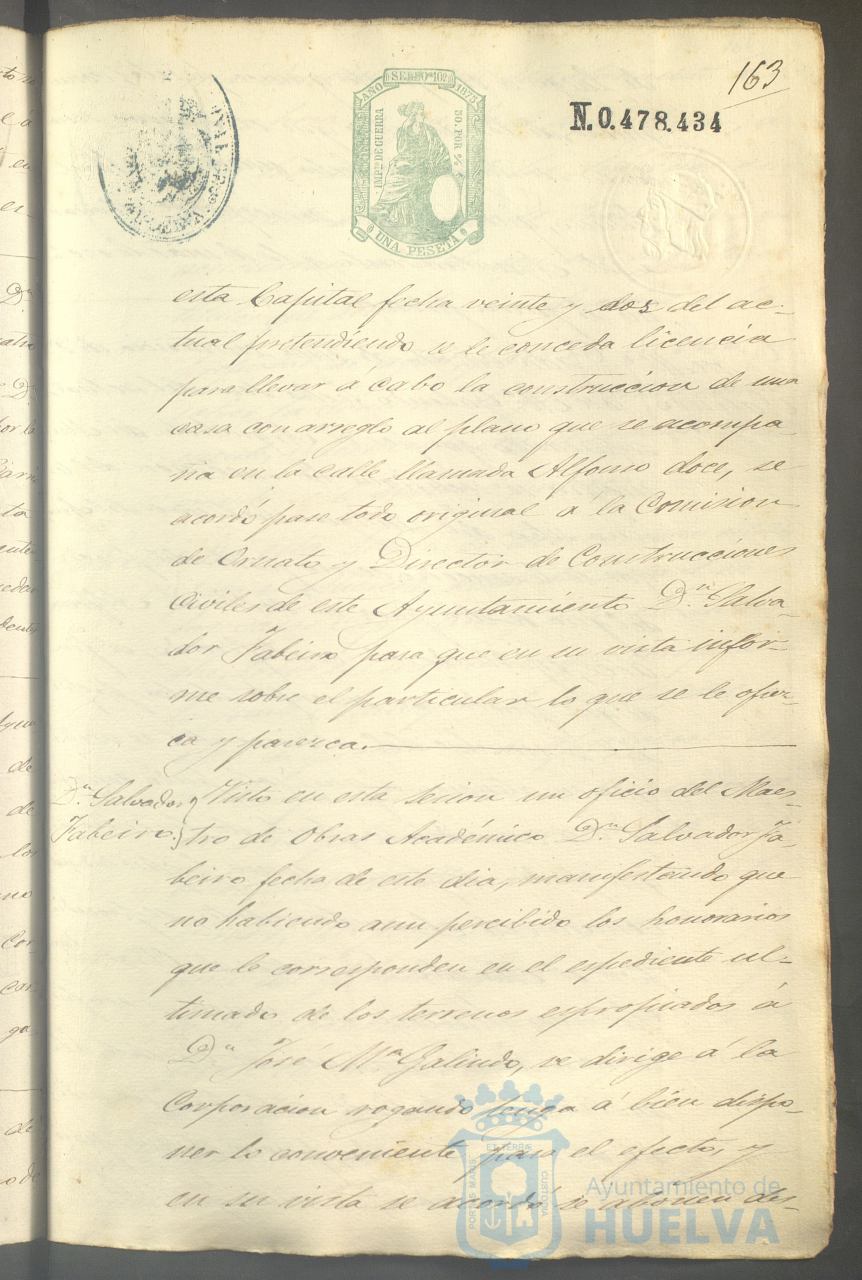 163
AÑO SELLO 10º 1875
IMPTO DE GUERRA
50 POR %
UNA PESETA
N.0.478.434
esta Capital fecha veinte y dos del ac-
tual pretendiendo se le conceda licencia
para llevar á cabo la construccion de una
casa con arreglo al plano que se acompa
ña en la calle llamada Alfonso doce, se
acordó pase todo original á la Comision
de Ornato y Director de Construcciones
Civiles de este Ayuntamiento Dn. Salva-
dor Fabeiro para que en su vista infor-
me sobre el particular lo que se le ofrez-
ca y parezca.
Dn. Salvador
Fabeiro.
Visto en esta sesion un oficio del Maes-
tro de Obras Académico Dn. Salvador Fa-
beiro fecha de este dia, manifestando que
no habiendo aun percibido los honorarios
que le corresponden en el espediente ul-
timado de los terrenos espropiados á
Dn. José Ma. Galindo, se dirige á la
Corporacion rogando tenga á bien dispo-
ner lo conveniente para el efecto, y
en su vista se acordó se abonen des-
PORTUS MARIS ET TERRÆ CUSTODIA
Ayuntamiento de
HUELVA